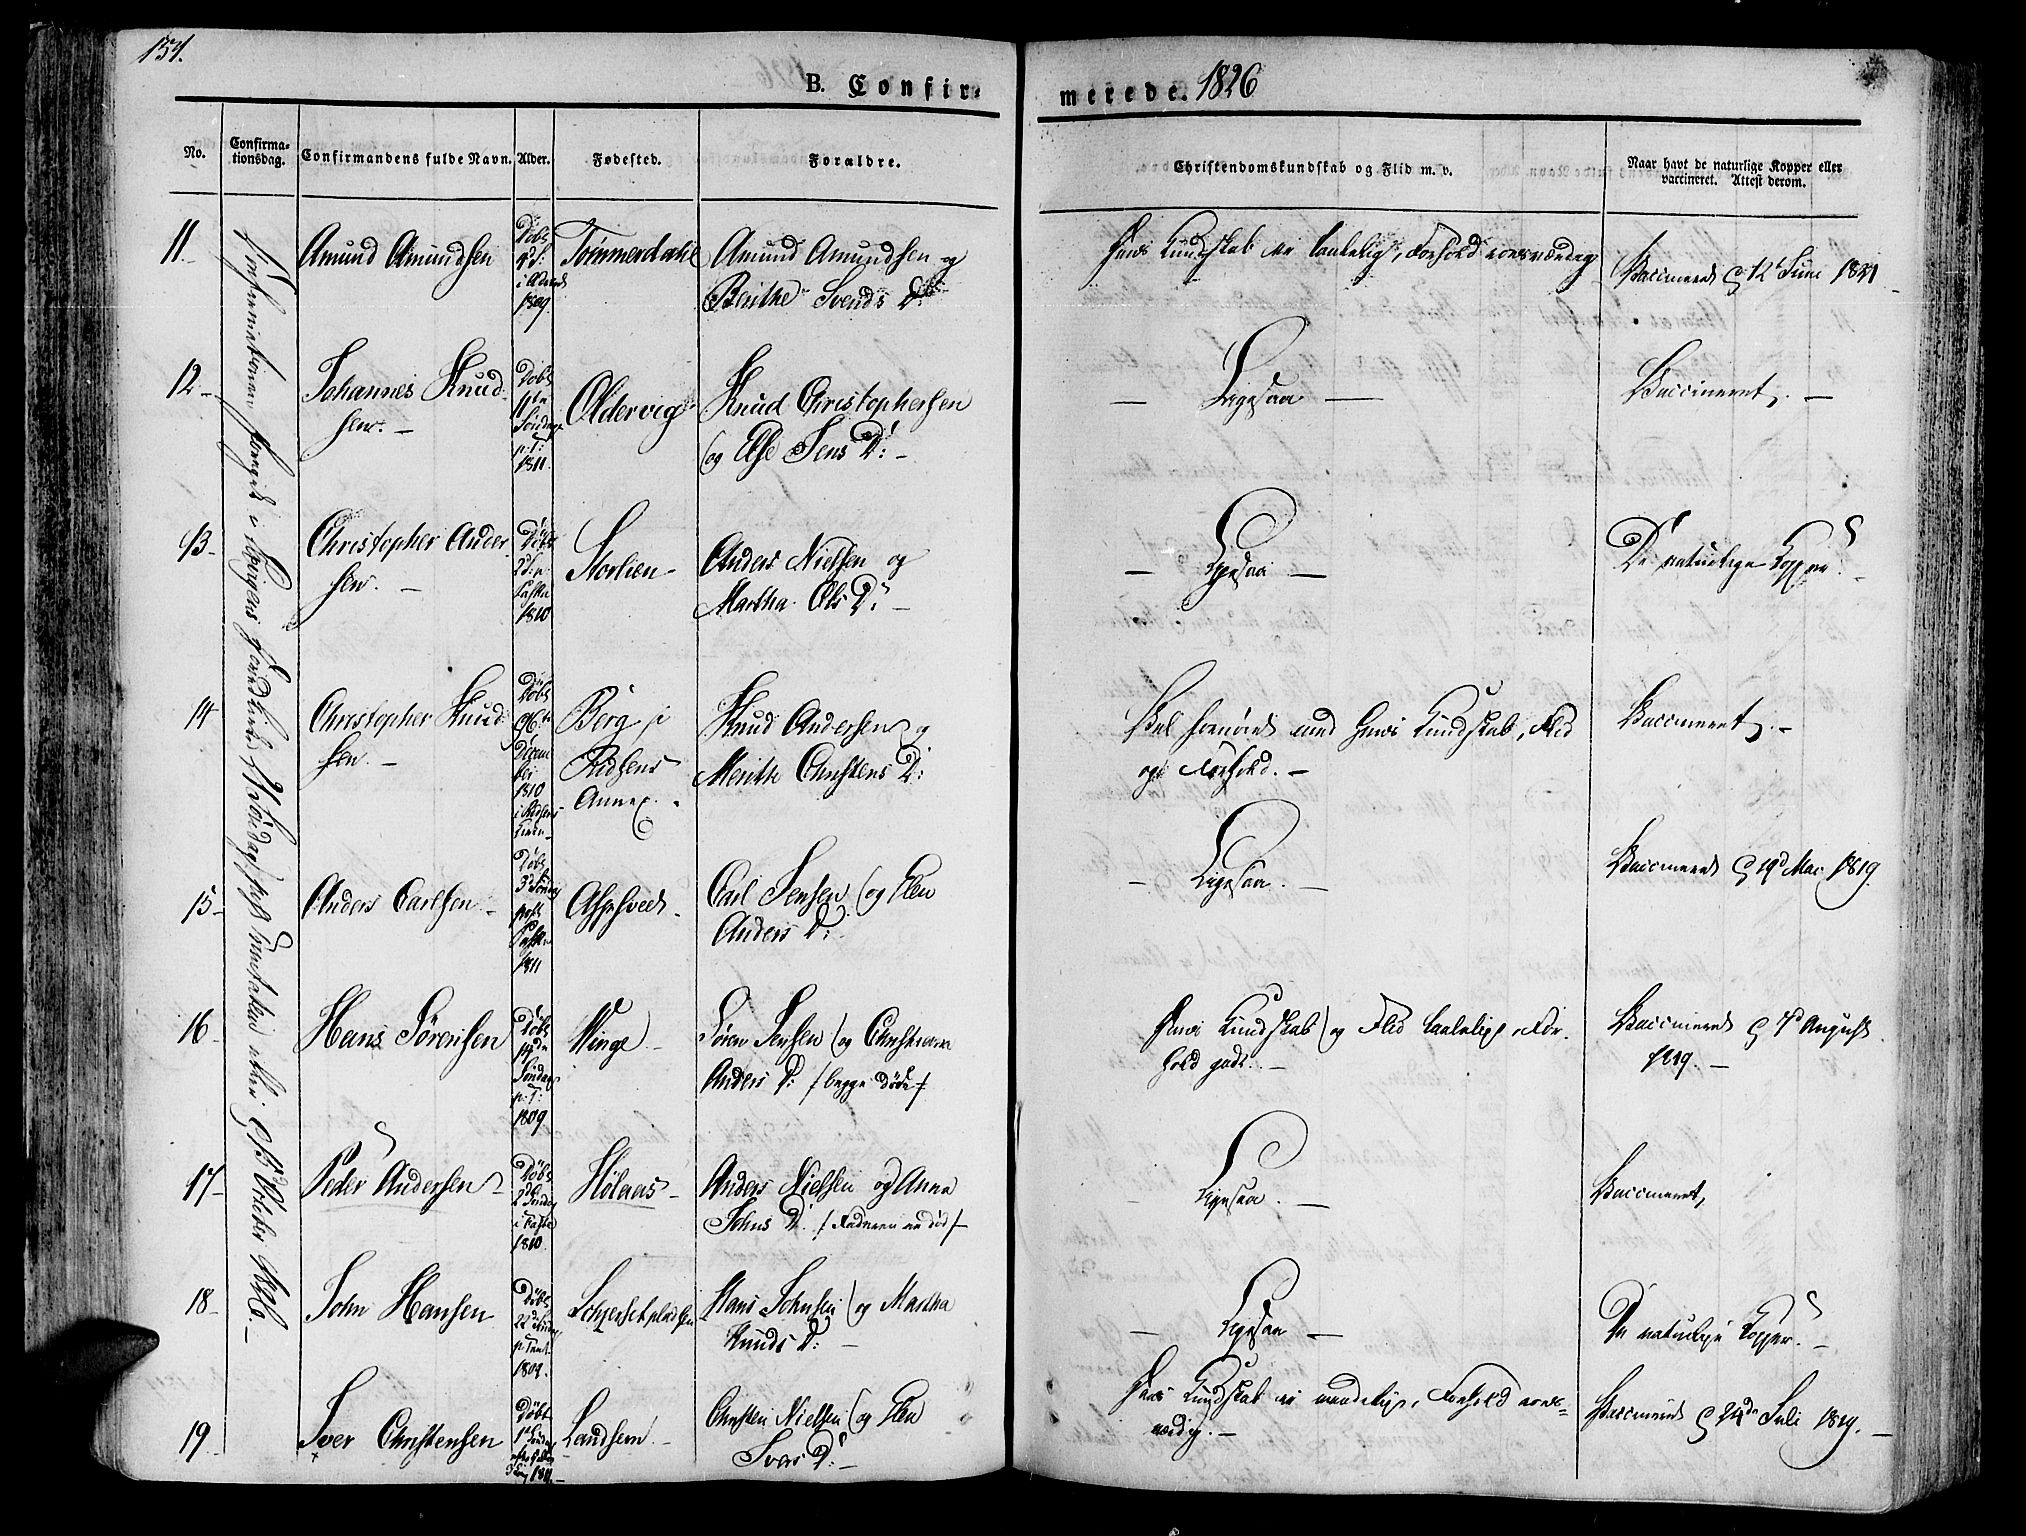 154.
B. Confir-
merede. 1826
No.
Confirma-
tionsdag.
Confirmandens fulde Navn.
Alder.
Fødested.
Forældre.
Christendomskundskab og Flid m. v.
Naar havt de naturlige Kopper eller
vaccineret. Attest derom.
11
Amund Amundsen
Døbt
1809.
Tømmerdahl
Amund Amundsen og
Berithe Svends D:
Hans Kundskab er taalelig, Forhold
Vaccineret d 12 Juni 1821
12-
Johannes Knud-
sen. -
Døbt
11te
Søndag
p. T:
1811.
Oldervig
Knud Christophersen
og Else Jens D: -
- Ligesaa -
Vaccineret. -
13-
Christopher Ander-
sen. -
Døbt
Paaske
1810
Storlien -
Anders Nielsen og
Martha Ols D: -
- Ligesaa -
De naturlige Kopper. -
14
Christopher Knud-
sen. -
Døbt
26te
Decem-
ber
1810
i Ridsens
Kirke -
Berg i
Ridsens
Annex.
Knud Andersen og
Merithe Christens D:
Vel fornøiet med Hans Kundskab, Flid
og Forhold. -
Vaccineret. -
15-
Anders Carlsen -
Døbt
3d Søndag
post
Paaske
1811
Aspesvedt -
Carl Jensen og Elen
Anders D:
- Ligesaa. -
Vaccineret d 19d Mai 1819.
16-
Hans Sørensen
Døbt
14de
Søndag
p. T:
1809
Winge -
Søren Jensen og Christiane
Anders D: / begge døde /
Hans Kundskab og Flid taalelig, For-
hold godt. -
Vaccineret d 4d August
1819. -
17-
Peder Andersen -
Døbt
2d Søndag
i Faste
1810.
Holaas -
Anders Nielsen og Anna
Johns D. / Faderen er død /
- Ligesaa. -
Vaccineret,
18-
John Hansen
Døbt
22d Søndag
p. Trint.
1809.
Hans Johnsen og Martha
Knuds D: -
- Ligesaa -
De naturlige Kopper. -
19-
Iver Christensen
Døbt
1ste Søndag
1811. -
Landsem. -
Christen Nielsen og Elen
Ivers D: -
Hans Kundskab er maadelig, Forhold rores-
værdig. -
Vaccineret d 24de Juli 1819. -